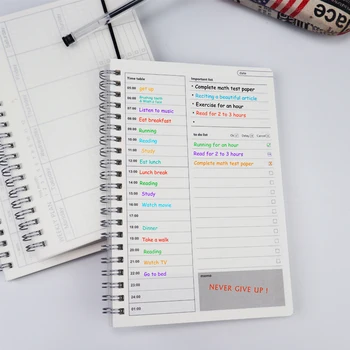 lace
Date:
Time table
05:00 get up
06:00
07:00 Listen to music
08:00 Eat breakfast
09:00 Running
10:00 Reading
11:00 Study
12:00 Eat lunch
13:00 Lunch break
14:00 Reading
15:00 Study
16:00 Watch movie
17:00
18:00 Dinner
19:00 Take a walk
20:00 Reading
21:00 Watch TV
22:00 Go to bed
23:00
24:00
01:00
Important list
Complete math test paper
Reciting a beautiful article
Exercise for an hour
Read for 2 to 3 hours
to do list
Running for an hour
Read for 2 to 3 hours
Complete math test paper
memo
NEVER GIVE UP !